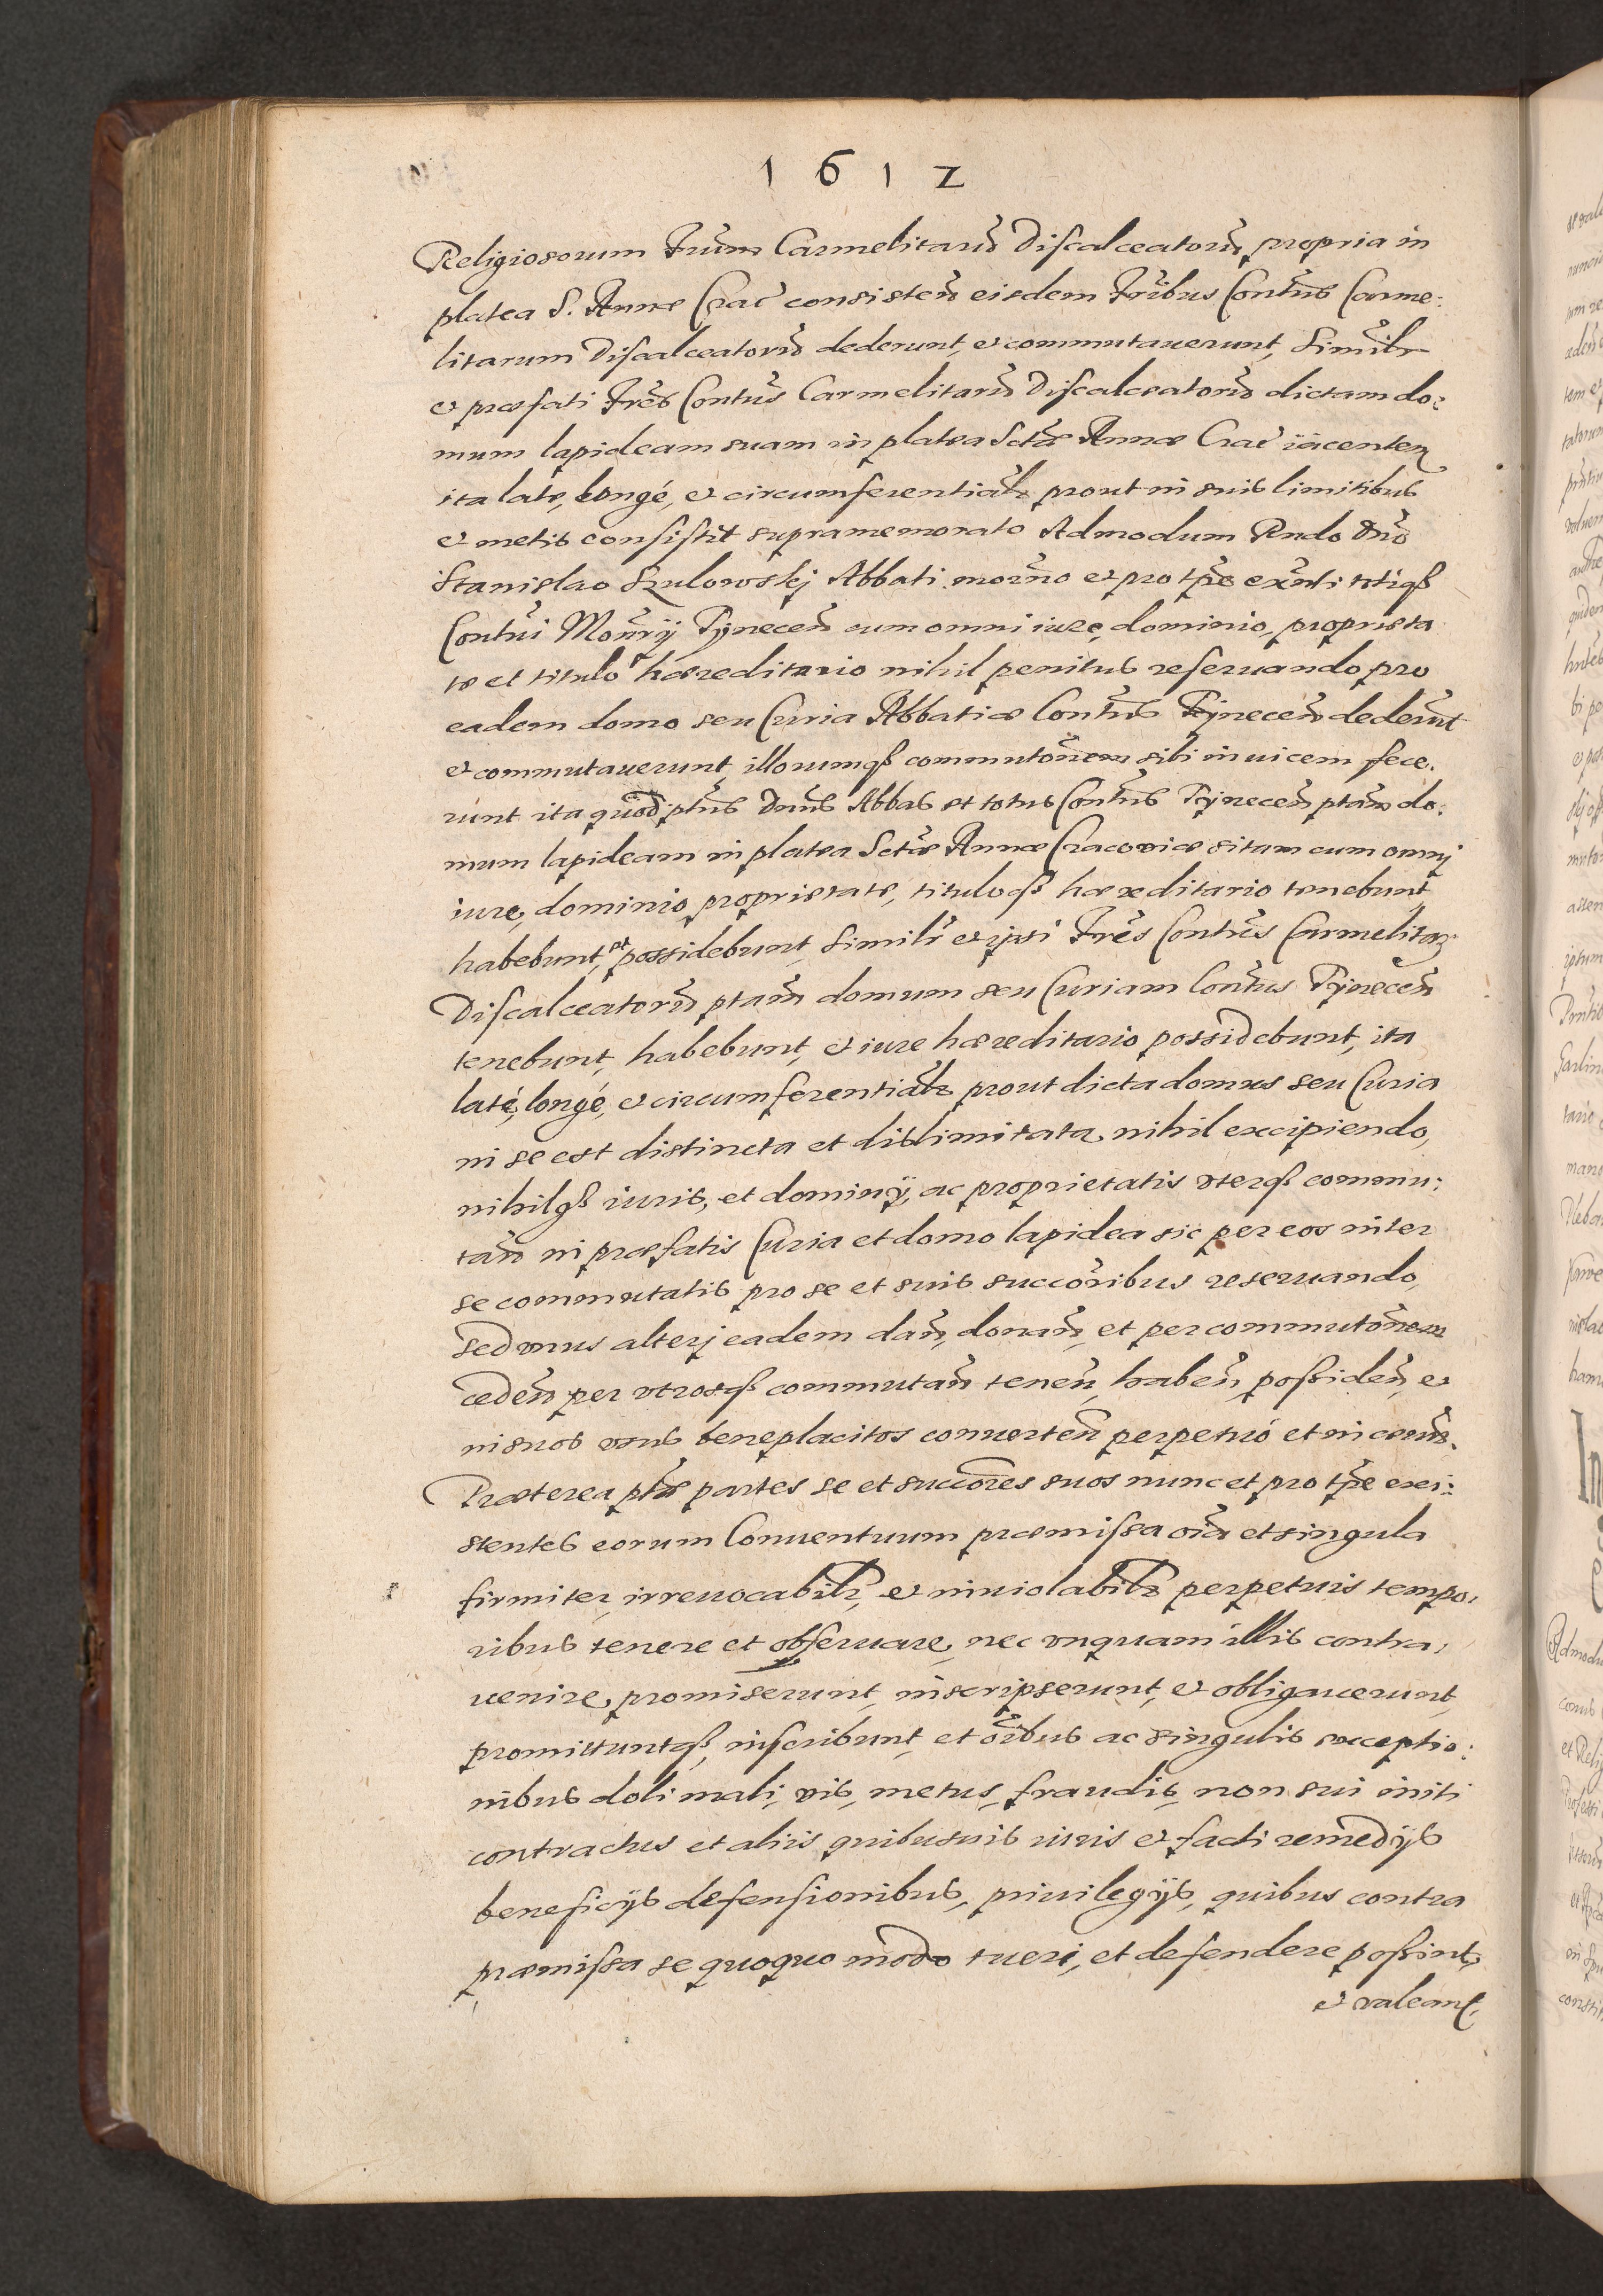 1612
Religiosorum Frum̃ Carmelitarũ Discalceatorũ propria in
platea S. Annæ Crac̃ consisteñ eisdem Fribus̃ Contus̃ Carme:
litarum Discalceatorũ dederunt, et commutauerunt, Similr̃
et præfati Fres̃ Contus̃ Carmelitarũ Discalceatorũ dictam do:
mum lapideam suam in platea Sctæ Annæ Crac̃ iacentem
ita late, longé, et circumferentialr̃ prout in suis limitibus
et metis consistit supramemorato Admodum Rndo Dnõ
Stanislao Szulowskj Abbati moerno et pro tpẽ exñti totiqß
Contuĩ Monrĩj Tÿneceñ cum omni iure, dominio, proprieta
te et titulo hæreditario nihil penitus reseruando pro
eadem domo seu Curia Abbatiæ Contus̃ Tÿneceñ dederũt
et commutauerunt, illorumqß commutõnem sibi inuicem fece.
runt ita quod ptus̃ Dnus̃ Abbas et totus Contus̃ Tÿneceñ ptam̃ do:
mum lapideam in platea Sctæ Annæ Cracoviæ sitam cum omnj
iure, dominio, proprietate, tituloqß hæreditario tenebunt
habebunt, et possidebunt, Similr̃ et ipsi Frẽs Contus̃ Carmelitarũ
Discalceatorũ ptam̃ domum seu Curiam Contus̃ Tÿneceñ
tenebunt, habebunt, et iure hæreditario possidebunt, ita
laté, longé, et circumferentialr̃ prout dicta domus seu Curia
in se est distincta et dislimitata, nihil excipiendo,
nihilqß iuris, et dominÿ, ac proprietatis vterqß commu:
tañ in præfatis Curia et domo lapidea sic per eos inter
se commutatis pro se et suis succorĩbus reseruando,
sed vnus alterj eadem dañ, donañ, et per commutõnem
cedeñ per vtrosqß commutañ teneñ, habeñ, possideñ, et
in suos vsus beneplacitos conuerteñ perpetuó et in æuũ.
Præterea ptæ̃ partes se et succorẽs suos nunc et pro tpẽ exi:
stentes eorum Conuentuum præmissa oĩa et singula
firmiter, irreuocabilr̃, et inuiolabilr̃ perpetuis tempo,
ribus tenere et obseruare, nec vnquam illis contra,
uenire, promiserunt, inscripserunt, et obligauerunt,
promittuntqß, inscribunt, et oĩbus ac singulis exceptio:
nibus doli mali, vis, metus, fraudis, non sui initi
contractus et aliis quibusuis iuris et facti remedÿs
beneficÿs defensionibus, priuilegÿs, quibus contra
præmissa se quoquo modo tueri, et defendere possint,
et valeant,